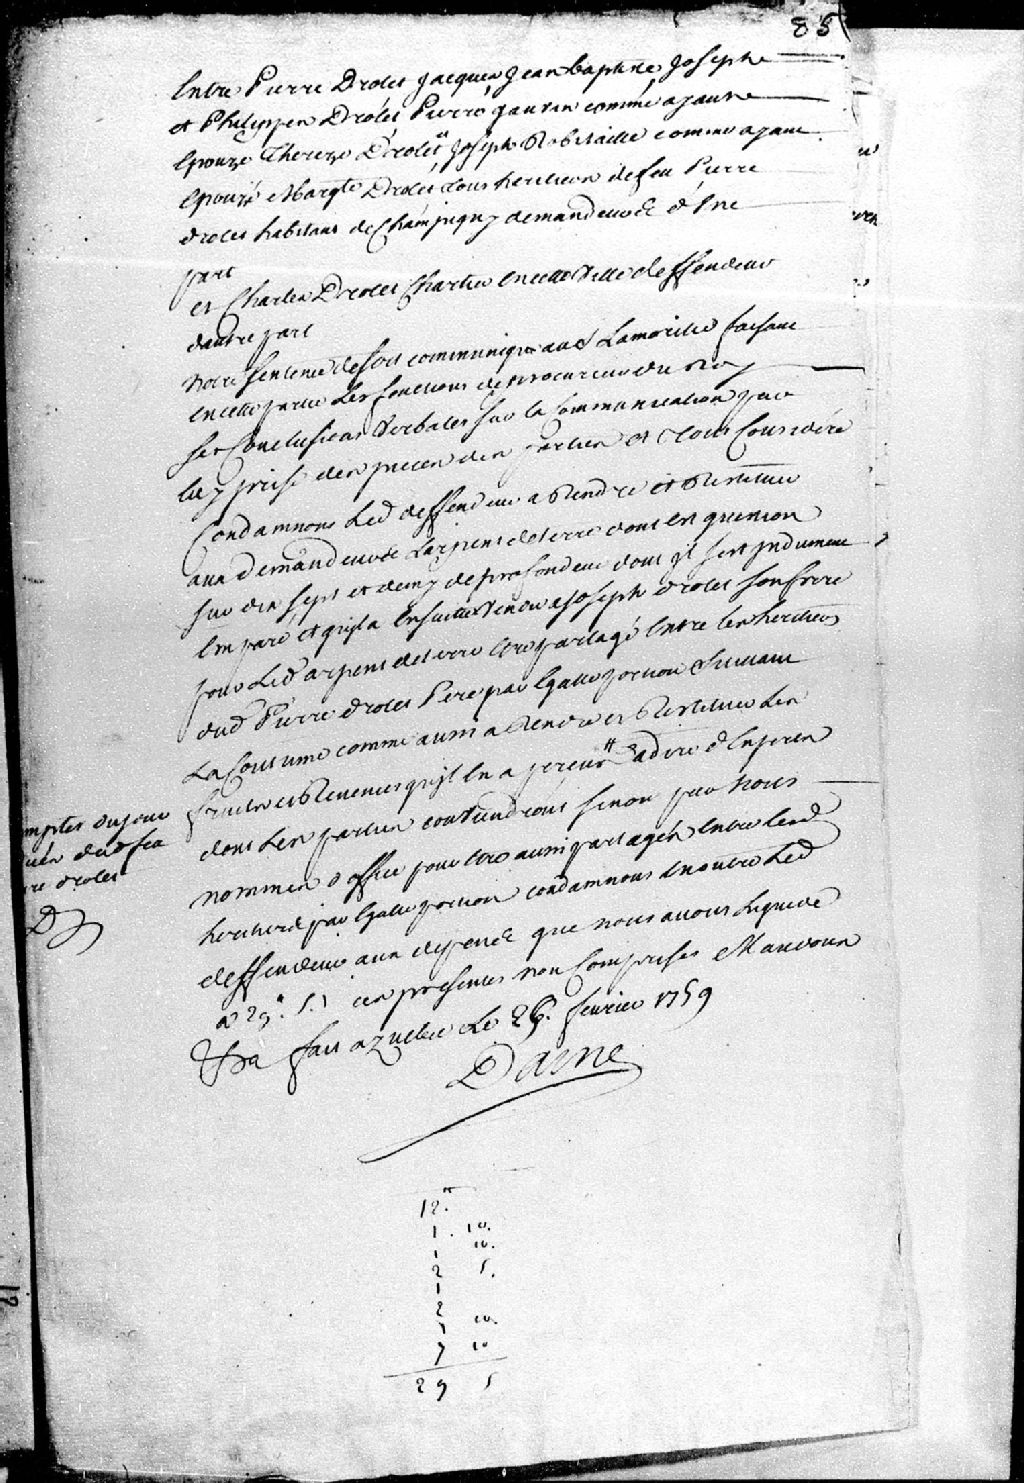 85
Entre Pierre Drolet Jacques Jean baptiste Joseph
et Philippen Drolet Pierre gauvin comme ayant
Epouzé Thereze Drolet, Joseph Robitaille comme ayant
Epouzé Margte Drolet tous heritiers de feu Pierre
drolet habitans de Champigny demandeurs d'Une
part
et Charles Drolet Chartier en cette Ville deffendeur
dautre part
Notre sentence de soit communiqué au Sr Lamorille faisant
en cette partie Les fonctions de procureur du Roy
Ses Conclusions Verbales sur la Communication par
luy prise des pieces des parties et Tout Consideré
Condamnons Led deffendeur a Rendre et Restituer
aux demandeurs L'arpent de terre dont est question
sur dix sept et demy de profondeur dont il s'est Indument
Emparé et qu'il a Ensuitte Vendu a Joseph drolet son frere
pour Led arpent de terre etre partagé Entre les heritiers
dud Pierre drolet Pere par Egalle portion Suivant
La Coutume comme aussi a Rendre et Restituer Les
fruits et Revenus qu'il en a perçus a dire d'Experts
dont Les parties conviendront sinon par Nous
nommés d'office pour etre aussi partagés Entre Lesd
heritiers par Egalle portion condamnons en outre Led
deffendeur aux depens que nous avons liquidé
a 29. 5. ces presentes non Comprises Mandons
&a fait a quebec Le 26. fevrier 1759
Daine
mptes du jour
du feu
re drolet
D
12.
1. 10.
1 10.
2 5.
1
2
1 10.
7 10
29 5